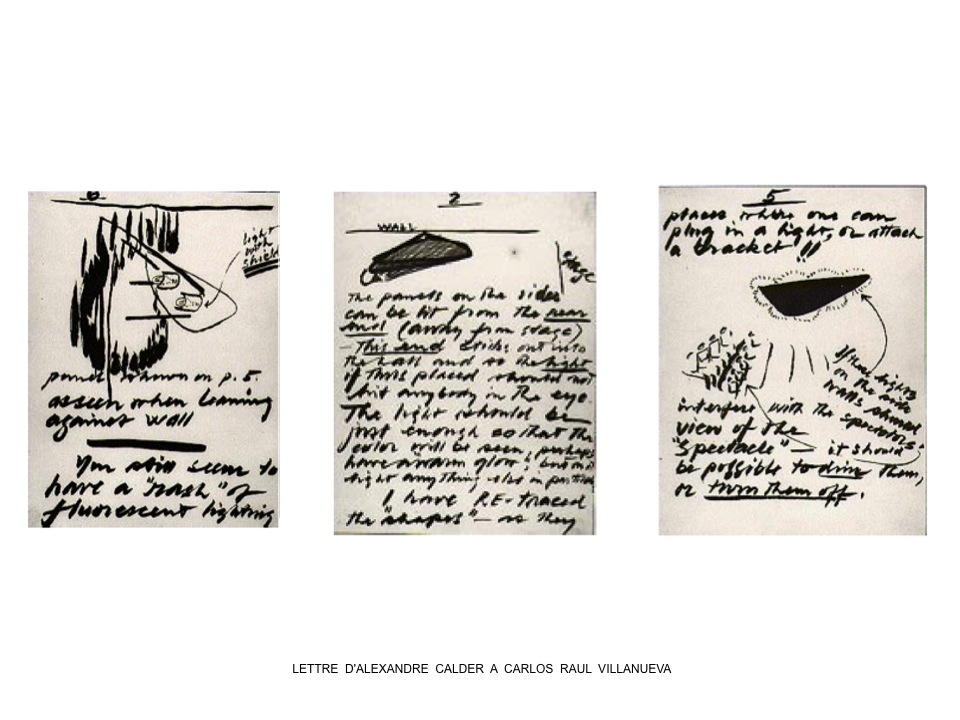 6
light
with
shield
panel shown on p. 5.
as seen when leaning
against wall
You still seem to
have a "rash" of
fluorescent lighting
2
WALL
stage
The panels on the sides
can be lit from the rear
end (away from stage)
— This end sticks out into
the hall and so the light
if thus placed should not
hit anybody in the eye.
The light should be
just enough so that the
color will be seen, perhaps
have a warm glow, but not
light anything else in particular
I have RE-traced
the "shapes" — as they
5
places where one can
plug in a light, or attach
a bracket!!
These lights
on the side
walls should
interfere with the spectators'
view of the
"spectacle" — it should
be possible to dim them,
or turn them off.
LETTRE D'ALEXANDRE CALDER A CARLOS RAUL VILLANUEVA